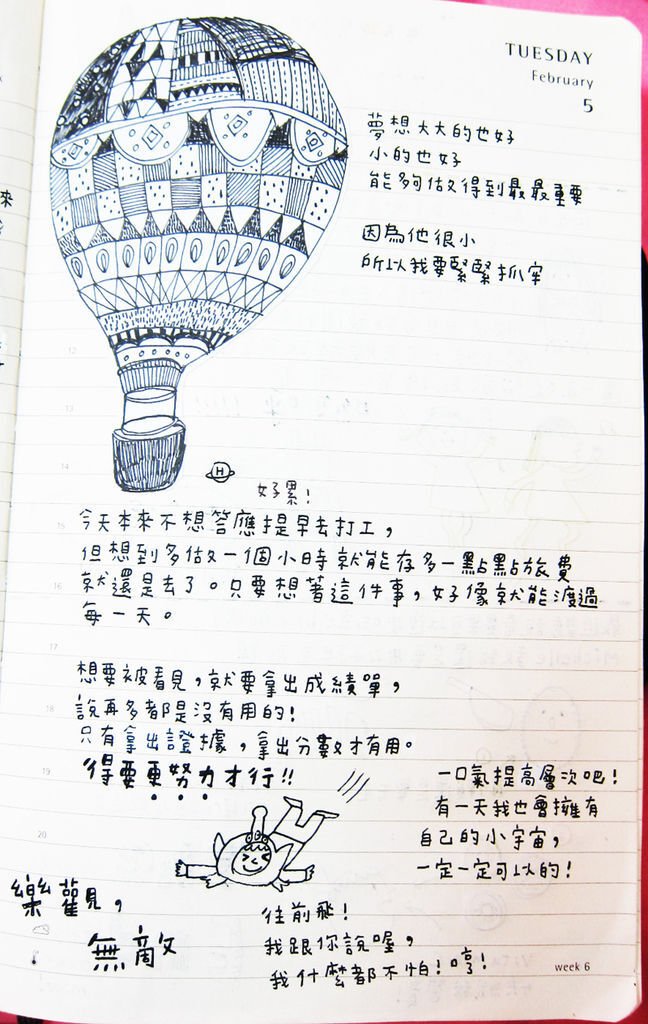 TUESDAY
February
5
夢想大大的也好
小的也好
能夠做得到最最重要
因為他很小
所以我要緊緊抓牢
12
13
14
H
好累!
15
今天本來不想答應提早去打工,
但想到多做一個小時就能存多一點點旅費
16
就還是去了。只要想著這件事,好像就能渡過
每一天。
17
想要被看見,就要拿出成績單,
18
說再多都是沒有用的!
只有拿出證據,拿出分數才有用。
19
得要更努力才行!!
一口氣提高層次吧!
有一天我也會擁有
20
自己的小宇宙,
一定一定可以的!
樂觀,
無敵
往前飛!
我跟你說喔,
我什麼都不怕!哼!
week 6